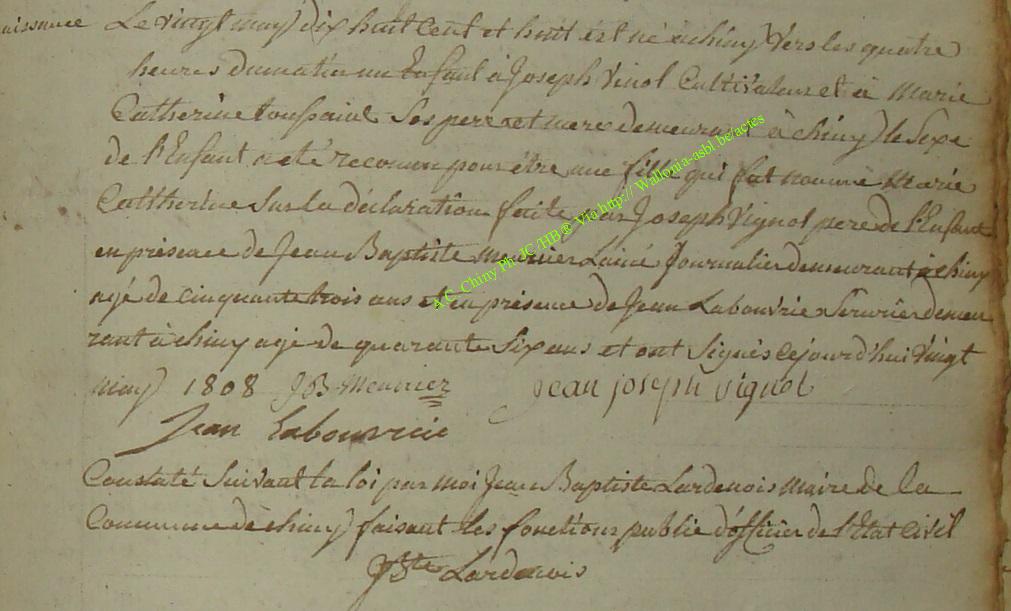 naissance Le vingt may dix huit Cent et huit est né a chiny vers les quatre
heures du matin un Enfant à Joseph vinol Cultivateur et à Marie
Catherine toussaint Ses pere et mere demeurant à chiny le Sexe
de l'Enfant a eté reconnu pour être une fille qui fut nomme Marie
Catherine Sur la déclaration faite par Joseph Vignol pere de l'Enfant
en présence de Jean Baptiste Meunier Lainé Journalier demeurant à chiny
agé de cinquante trois ans et en présence de Jean Labouvrie Serurier demeu
rant à chiny agé de quarante Six ans et ont Signés cejourd'hui vingt
may 1808 JB Meunier Jean joseph vignol
Jean Labouvrie
Constaté Suivant la loi par moi Jean Baptiste Lardenois Maire de la
Commune de chiny faisant les fonctions public d'officier de l'Etat Civil
JBte Lardenois
A.C. Chiny Ph JC HB® Via http:// Wallonia-asbl.be/actes